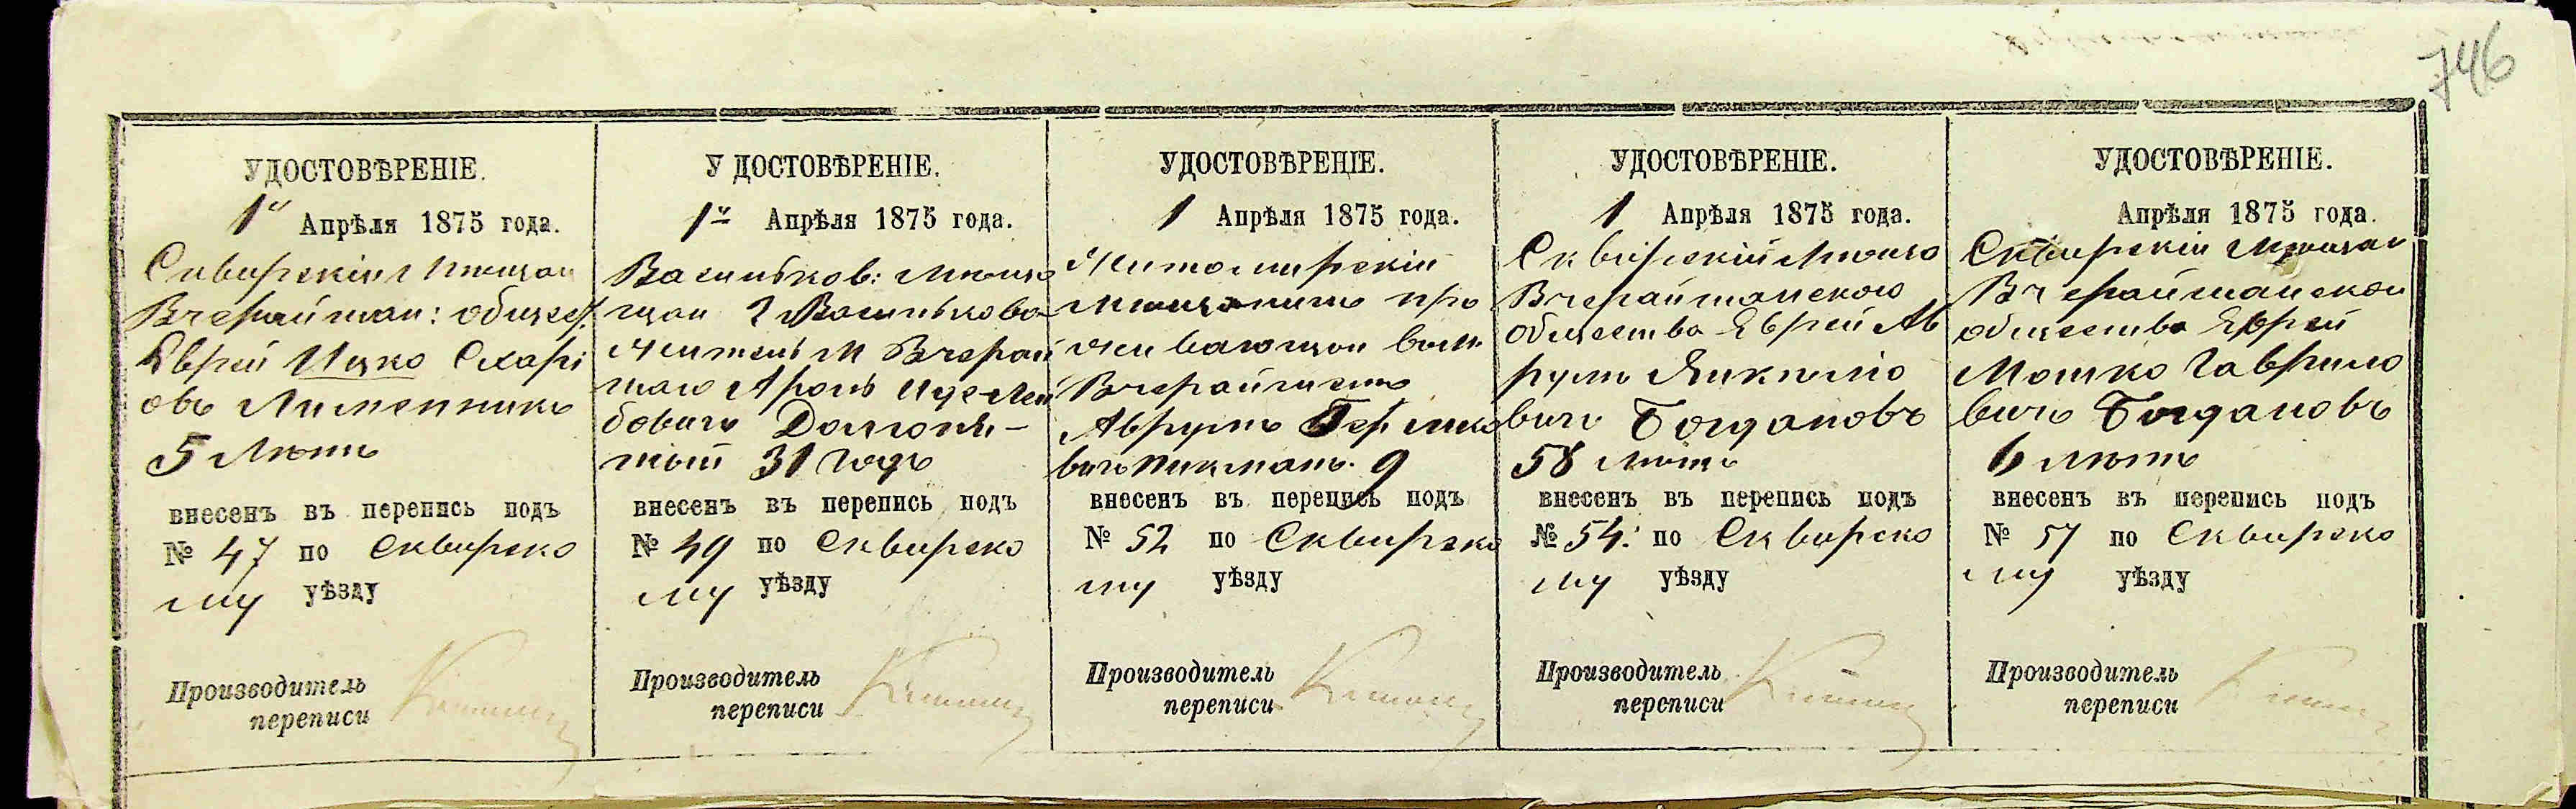 746
УДОСТОВѢРЕНІЕ.
1й Апрѣля 1875 года.
Сквирскій Мѣщан
Вчерайшан: общест.
Еврей Ицко Схарі
овъ Лименникъ
5 лѣтъ
внесенъ въ перепись подъ
№ 47 по Сквирско
му уѣзду
Производитель
переписи
УДОСТОВѢРЕНІЕ.
1й Апрѣля 1875 года.
Васильков: Мѣща
щан г Василькова
житель М Вчерай
шаго Аронъ Ицк-Лей
бовичъ
31 годъ
внесенъ въ перепись подъ
№ 49 по Сквирско
му уѣзду
Производитель
переписи
УДОСТОВѢРЕНІЕ.
1 Апрѣля 1875 года.
Житомирскій
Мѣщанинъ про
живающій въ М
Вчерайшемъ
Аврумъ Гершко
вичъ 9
внесенъ въ перепись подъ
№ 52 по Сквирско
му уѣзду
Производитель
переписи
УДОСТОВѢРЕНІЕ.
1 Апрѣля 1875 года.
Сквирскій Мѣща
Вчерайшанского
общества Еврей Ав
румъ Янкелио
вичъ Богдановъ
58 лѣтъ
внесенъ въ перепись подъ
№ 54: по Сквирско
му уѣзду
Производитель
переписи
УДОСТОВѢРЕНІЕ.
Апрѣля 1875 года.
Сквирскій Мѣщан
Вчерайшанской
общества Еврей
Мошко Гаврило
вичъ Богдановъ
6 лѣтъ
внесенъ въ перепись подъ
№ 57 по Сквирско
му уѣзду
Производитель
переписи